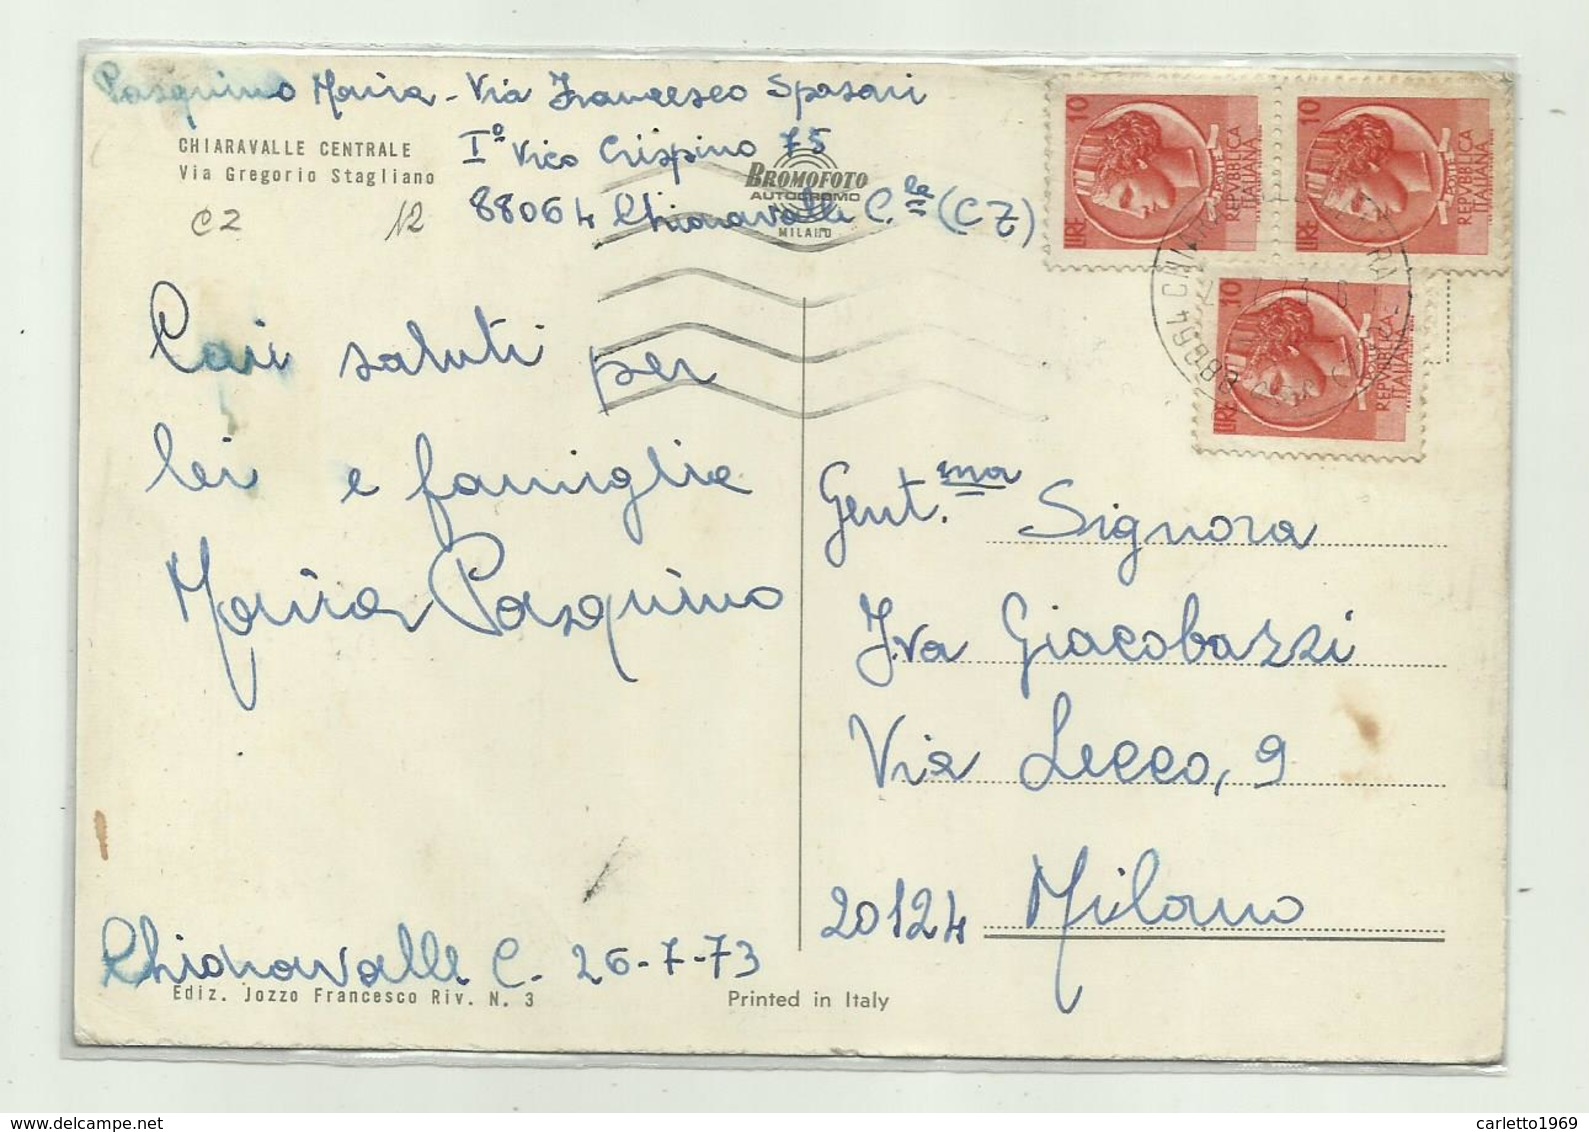 Pasquino Maria - Via Francesco Spasari
I° Vico Crispino 75
88064 Chiaravalle C.le (CZ)
CHIARAVALLE CENTRALE
Via Gregorio Stagliano
CZ 12
BROMOFOTO
AUTODROMO
MILANO
LIRE 10
POSTE
REPVBBLICA
ITALIANA
LIRE 10
POSTE
REPVBBLICA
ITALIANA
LIRE 10
REPVBBLICA
ITALIANA
88064
Cari saluti per
lei e famiglia
Maria Pasquino
Chiaravalle C. 26-7-73
Gent.ma Signora
Iva Giacobazzi
Via Lecco, 9
20124 Milano
Ediz. Jozzo Francesco Riv. N. 3
Printed in Italy
carletto1969